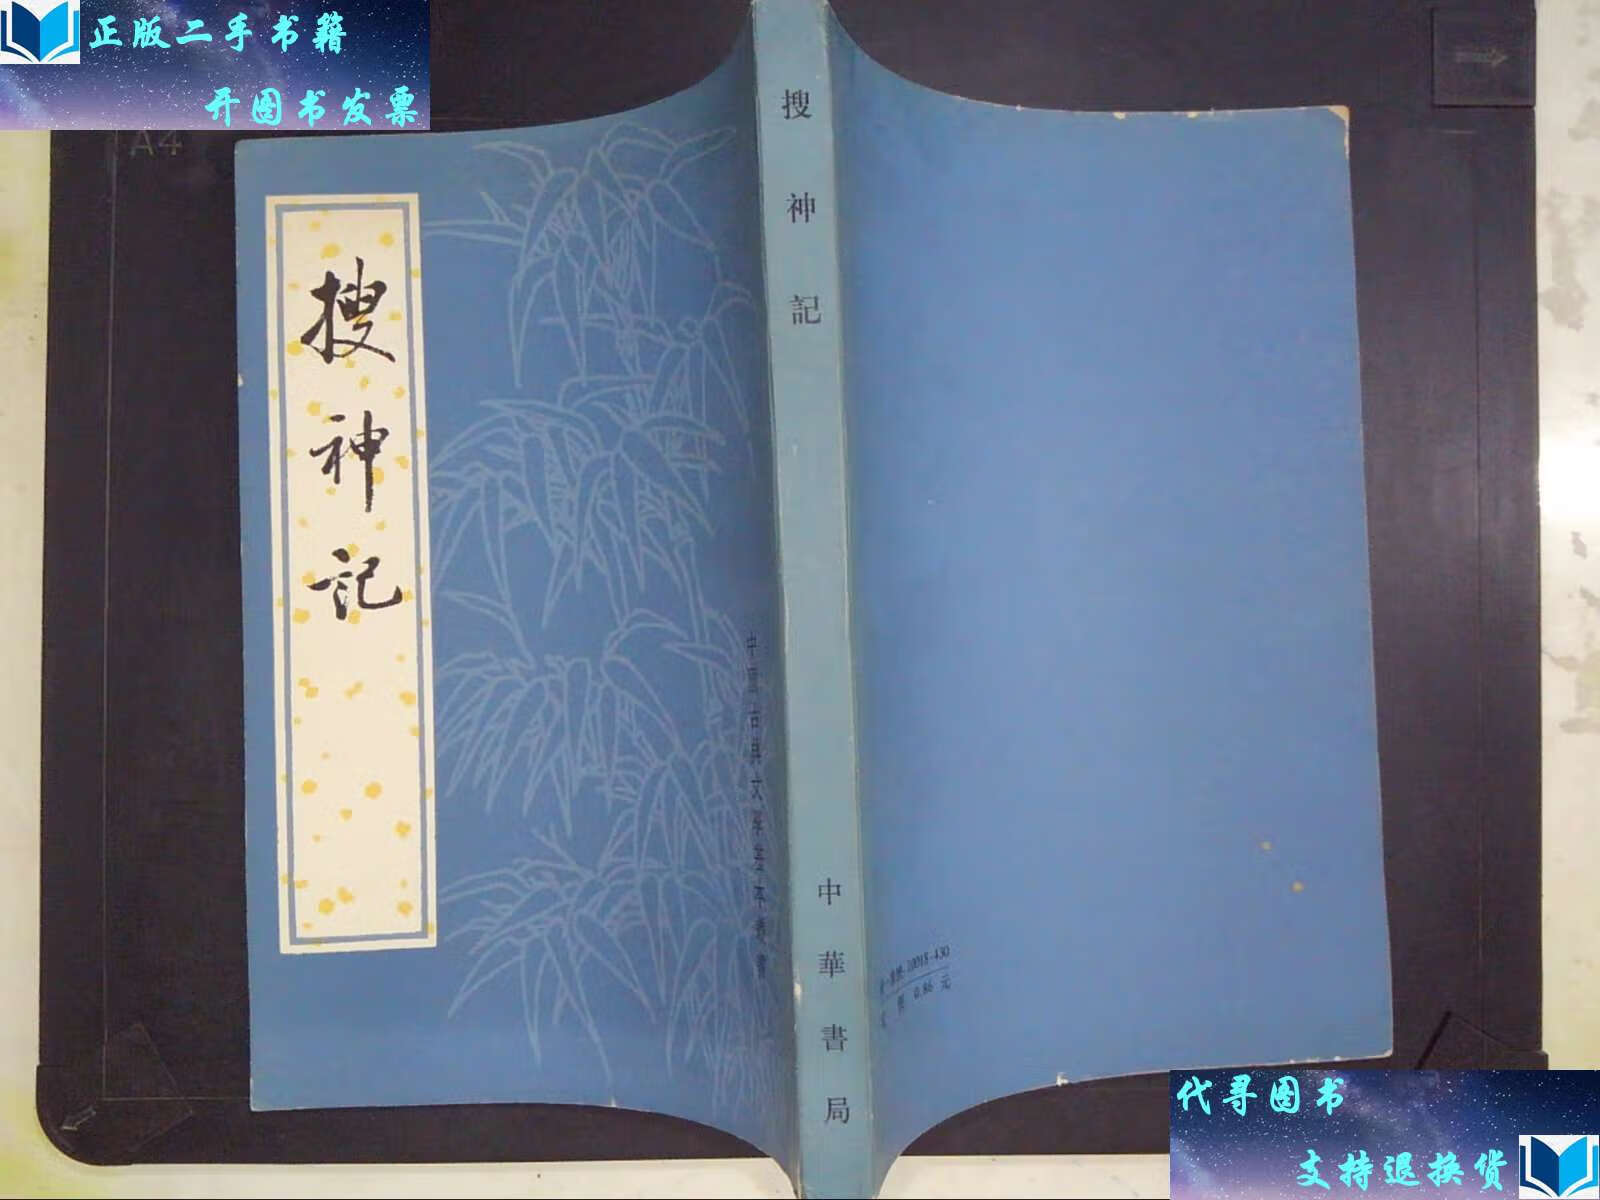 正版二手书籍
开图书发票
A4
搜神記
中国古典文学基本叢書
搜神記
中華書局
統一書號:10018·430
定價 0.86 元
代寻图书
支持退换货